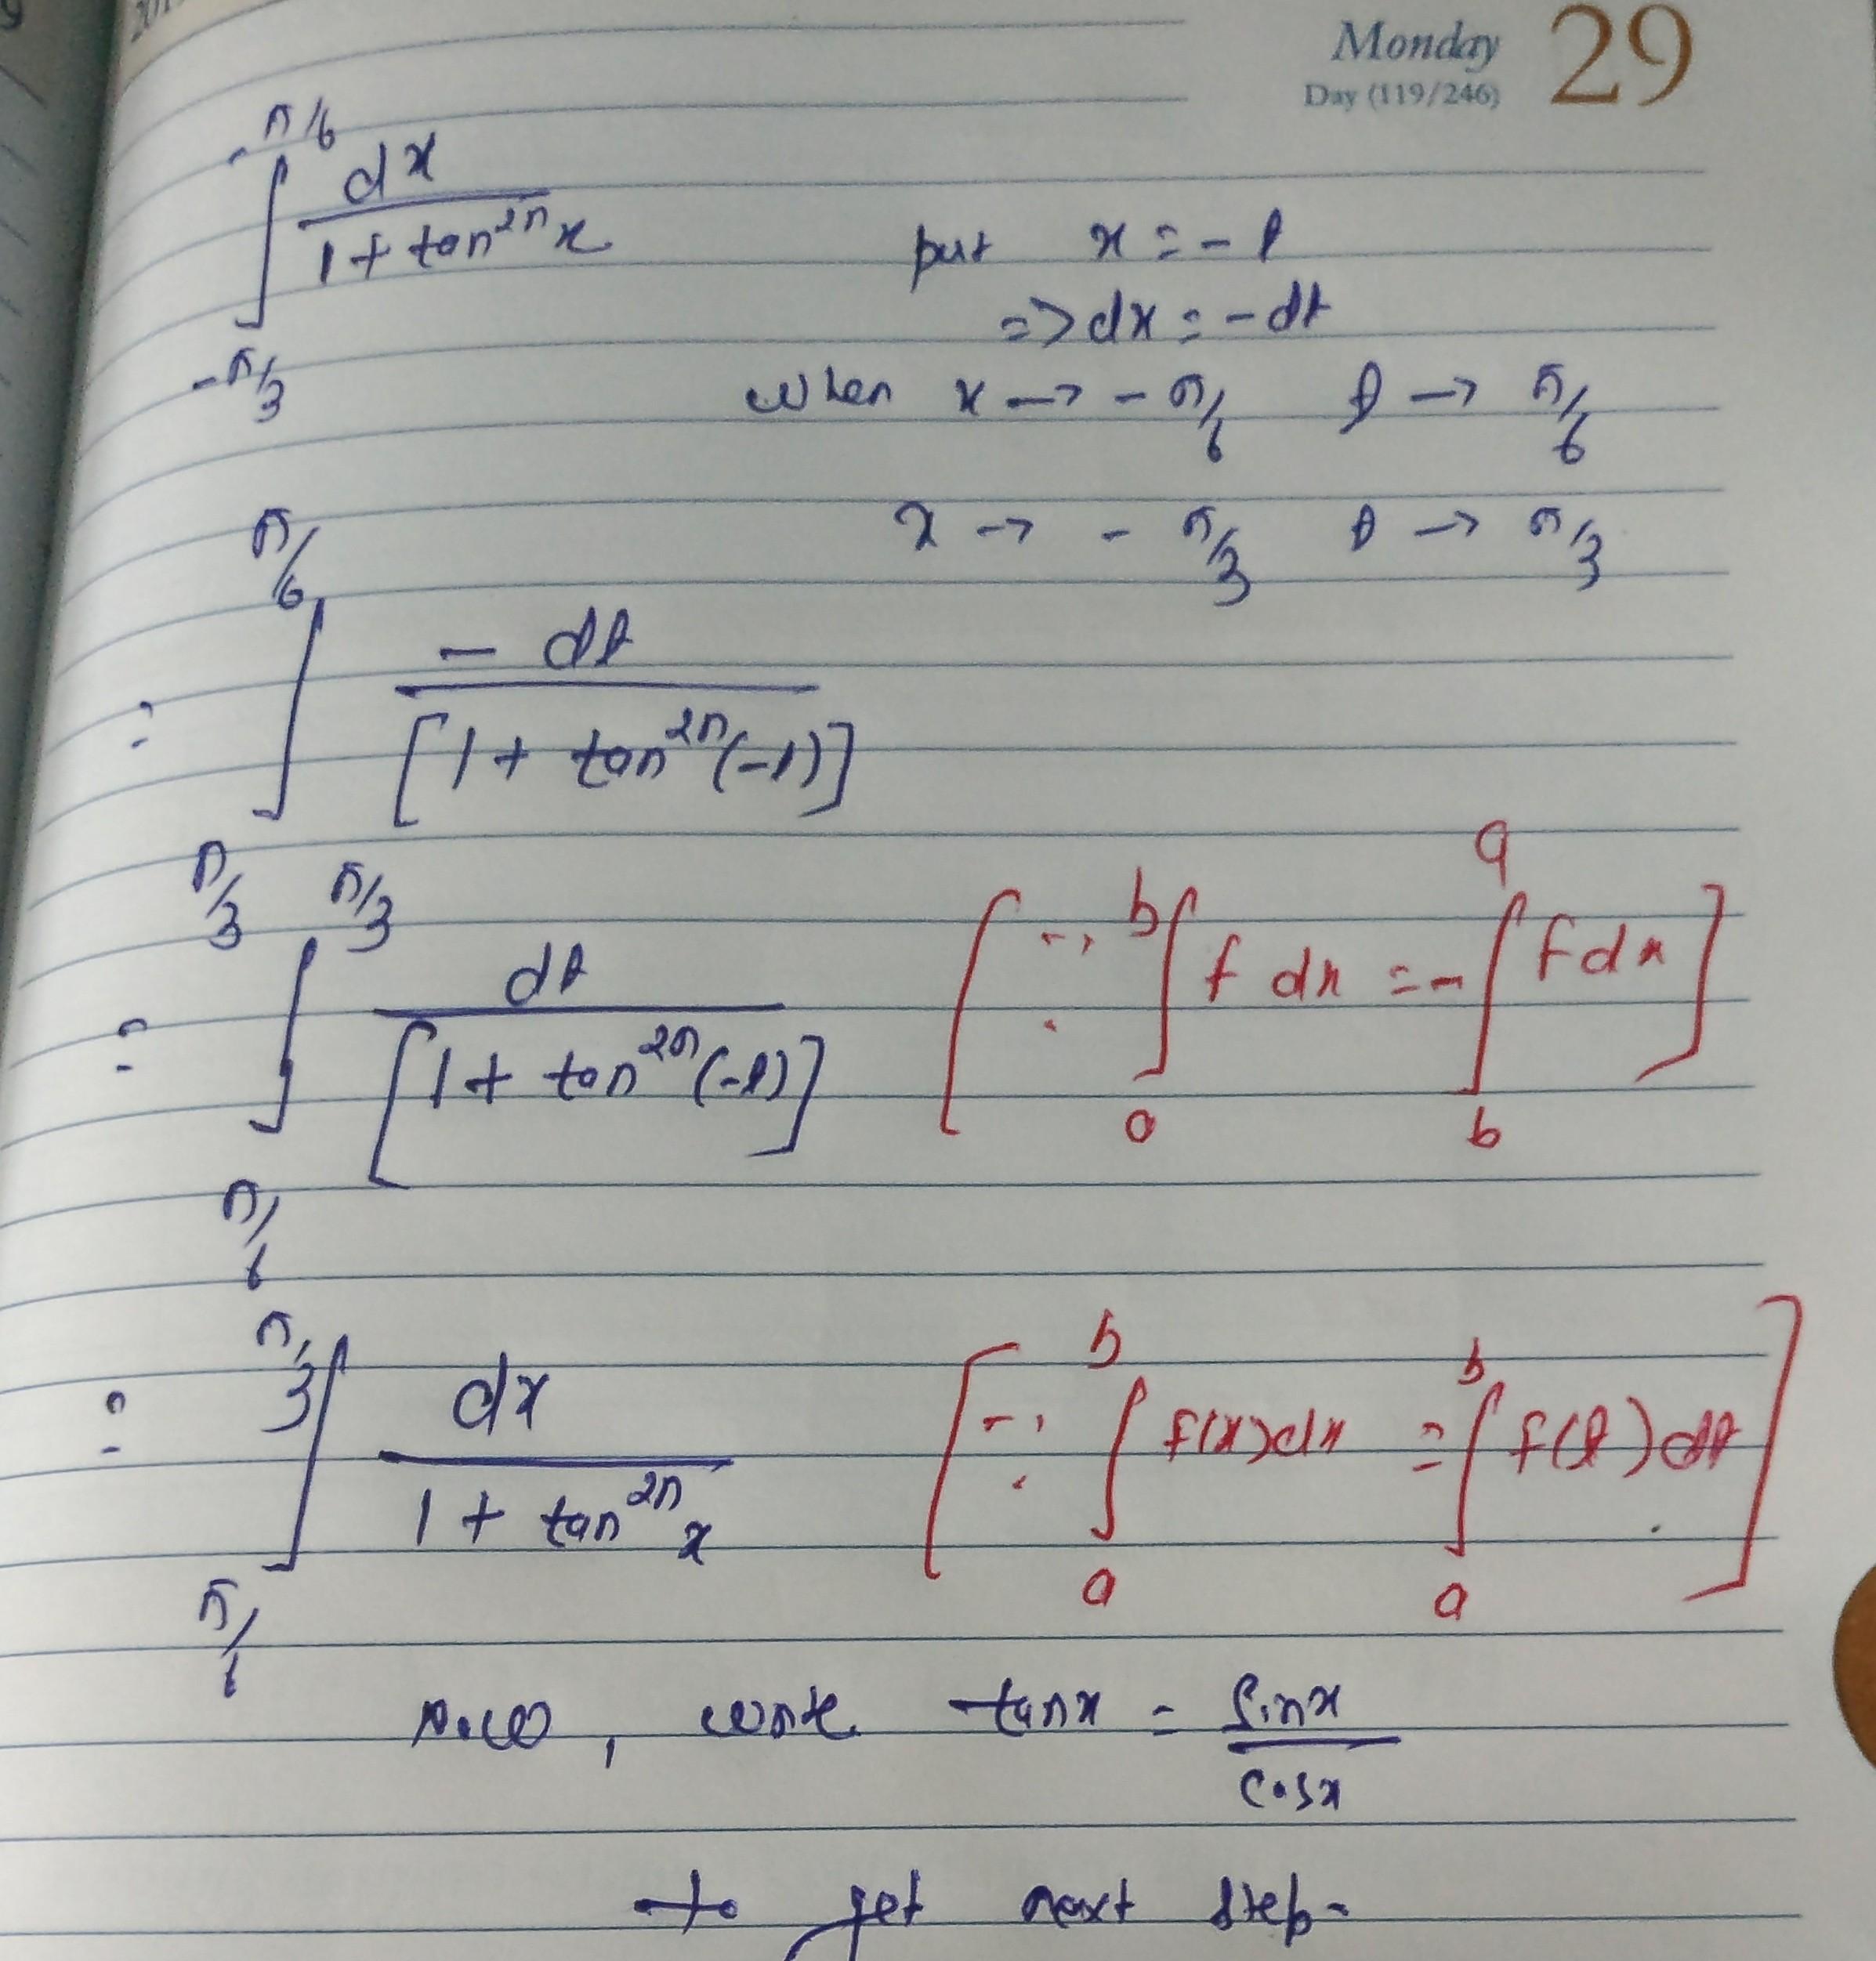 Monday 29
Day (119/246)
-π/6
∫ dx / 1 + tan²ⁿx
-π/3
put x = -t
=> dx = -dt
when x → -π/6 t → π/6
x → -π/3 t → π/3
π/6
= ∫ -dt / [1 + tan²ⁿ(-t)]
π/3
π/3
= ∫ dt / [1 + tan²ⁿ(-t)] [∵ ᵇ∫ₐ f dx = - ᵃ∫_b f dx]
π/6
π/3
= ∫ dx / 1 + tan²ⁿx [∵ ᵇ∫ₐ f(x)dx = ᵇ∫ₐ f(t)dt]
π/6
Now, write tanx = sinx / cosx
to get next step-